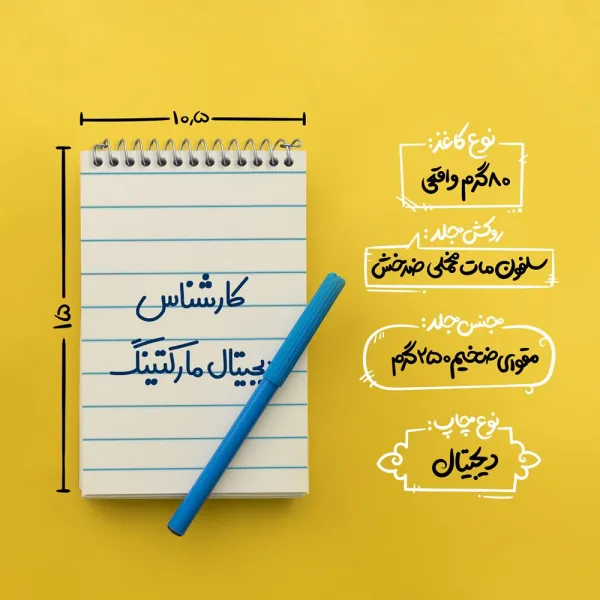 ۱۰,۵
۱۵
کارشناس
دیجیتال مارکتینگ
نوع کاغذ:
۸۰ گرم واقعی
روکش جلد:
سلفون مات مخملی ضدخش
جنس جلد:
مقوای ضخیم ۲۵۰ گرم
نوع چاپ:
دیجیتال